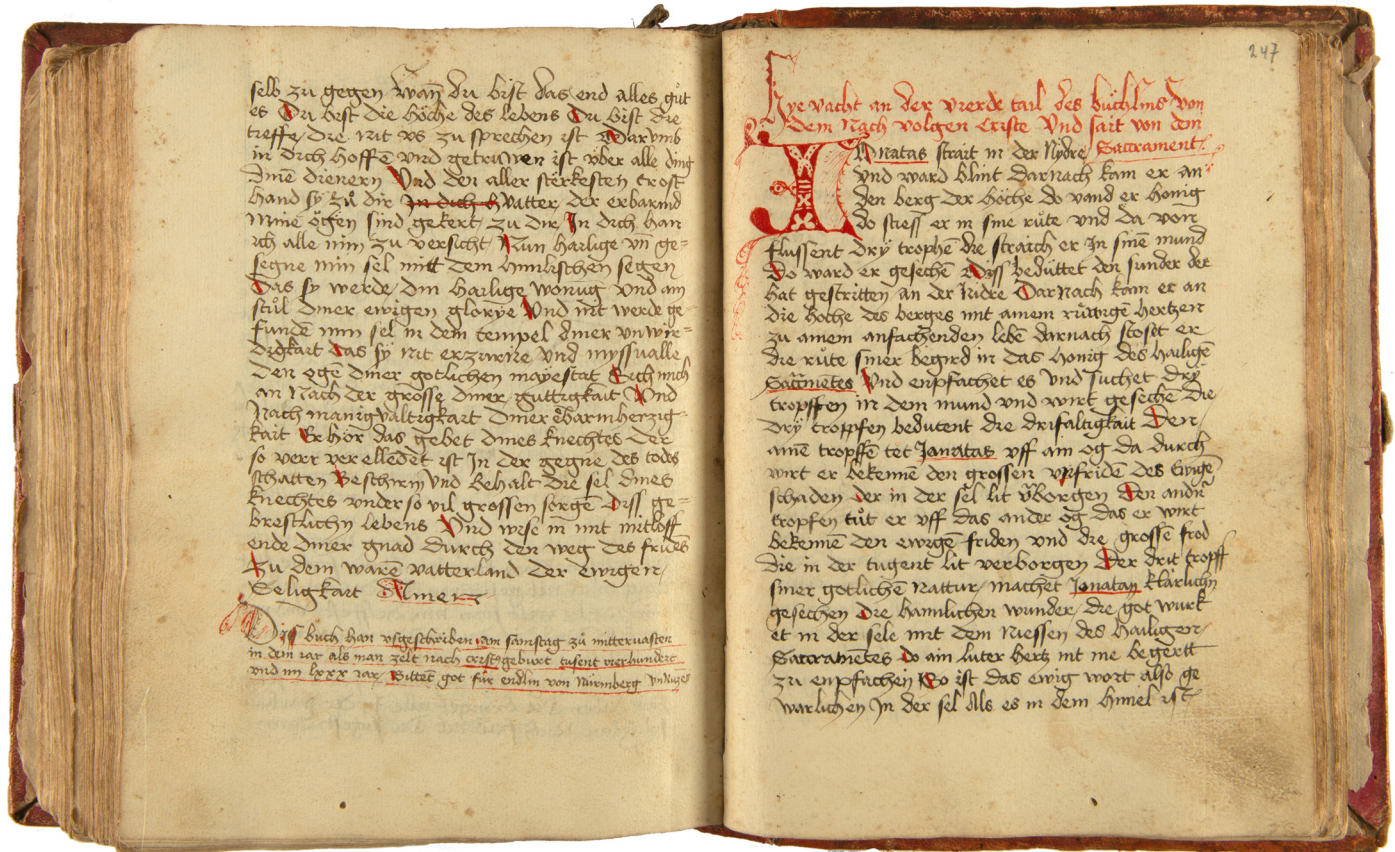 selb zu gegen wañ du bist das end alles gůt
es Du bist die höche des lebens Du bist die
treffe die mit vs zu sprechen ist Darumb
in dich hoffē vnd getruwen ist über alle ding
dinē dienern Vnd den aller sterkesten trost
hand sy zů dir in dich h vatter der erbarmd
mine ögen sind gekert zu dir In dich han
ich alle min zu versicht Nun hailige vn̄ ge=
segne min sel mitt dem himlischen segen
Das sy werde din hailige wonūg vnd ain
stůl diner ewigen glorye Vnd nit werde ge=
fundē min sel in dem tempel diner vnwir=
digkait das sy nit erzürne vnd myssualle
den ogē diner gotlichen mayestat Sich mich
an Nach der grosse diner guttigkait Vnd
Nach manigvaltigkait diner erbarmherzig=
kait Erhör das gebet dines knechtes der
so verr verellēdet ist In der gegne des todes
schatten Beschirm vnd behalt die sel dines
knechtes vnder so vil grossen sorgē diss ge=
brestlichn lebens Vnd wise in mit mitloff
ende diner gnad durch den weg des frides
Zu dem warē vatterland der ewigen
Seligkait Amen
Diss buch han vsgeschriben am samstag zů mitteruasten
in dem iar als man zelt nach crist geburt tusent vierhundert
vnd im lxxx iar Bittet got für endlin von Nürmberg
247
Hye vacht an der vierde tail des büchlins von
dem Nach volgen Criste vnd sait von dem
Sacrament
Jonatas strait in der Nydre
vnd ward blint darnach kam er an
den berg der höche do vand er honig
do stiess er in sine růte vnd da von
flussent dry trophē die straich er In sinē mund
Do ward er gesechē Dyss bedüttet den sunder der
hat gestritten an der Nidre Darnach kam er an
die höche des berges mit ainem rüwigē hertzen
zu ainem anfachenden lebē darnach stosset er
die růte siner begird in das honig des hailigē
Sacrametes Vnd enpfachet es vnd suchet dry
tropffen in dem mund vnd wirt gesechē Die
dry tropffen bedutent die drifaltigkait Den
ainē tropffē tet Jonatas vff ain og da durch
wirt er bekennē den grossen vnfriden des Ewigē
schaden der in der sel lit v̄borgen den andn̄
tropfen tůt er vff das ander og das er wirt
bekennē den ewigē friden vnd die grossē frod
die in der tugent lit verborgen Der drit tropff
siner gotlichē Nattur machet Jonatan klarlichn
gesechen die haimlichen wunder die got wurk
et in der sele mit dem Niessen des hailigen
Sacramētes do ain luter hertz nit me begertt
zu enpfachen So ist das ewig wort also ge
warlichen In der sel Als es in dem himel ist